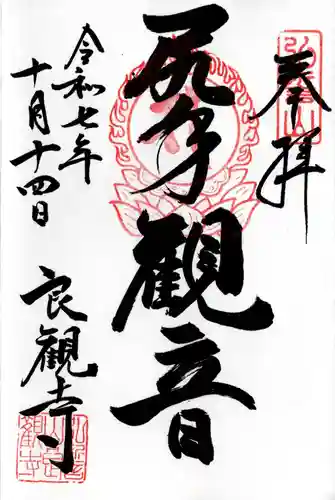 奉拝
尻手観音
令和七年
十月十四日
良観寺